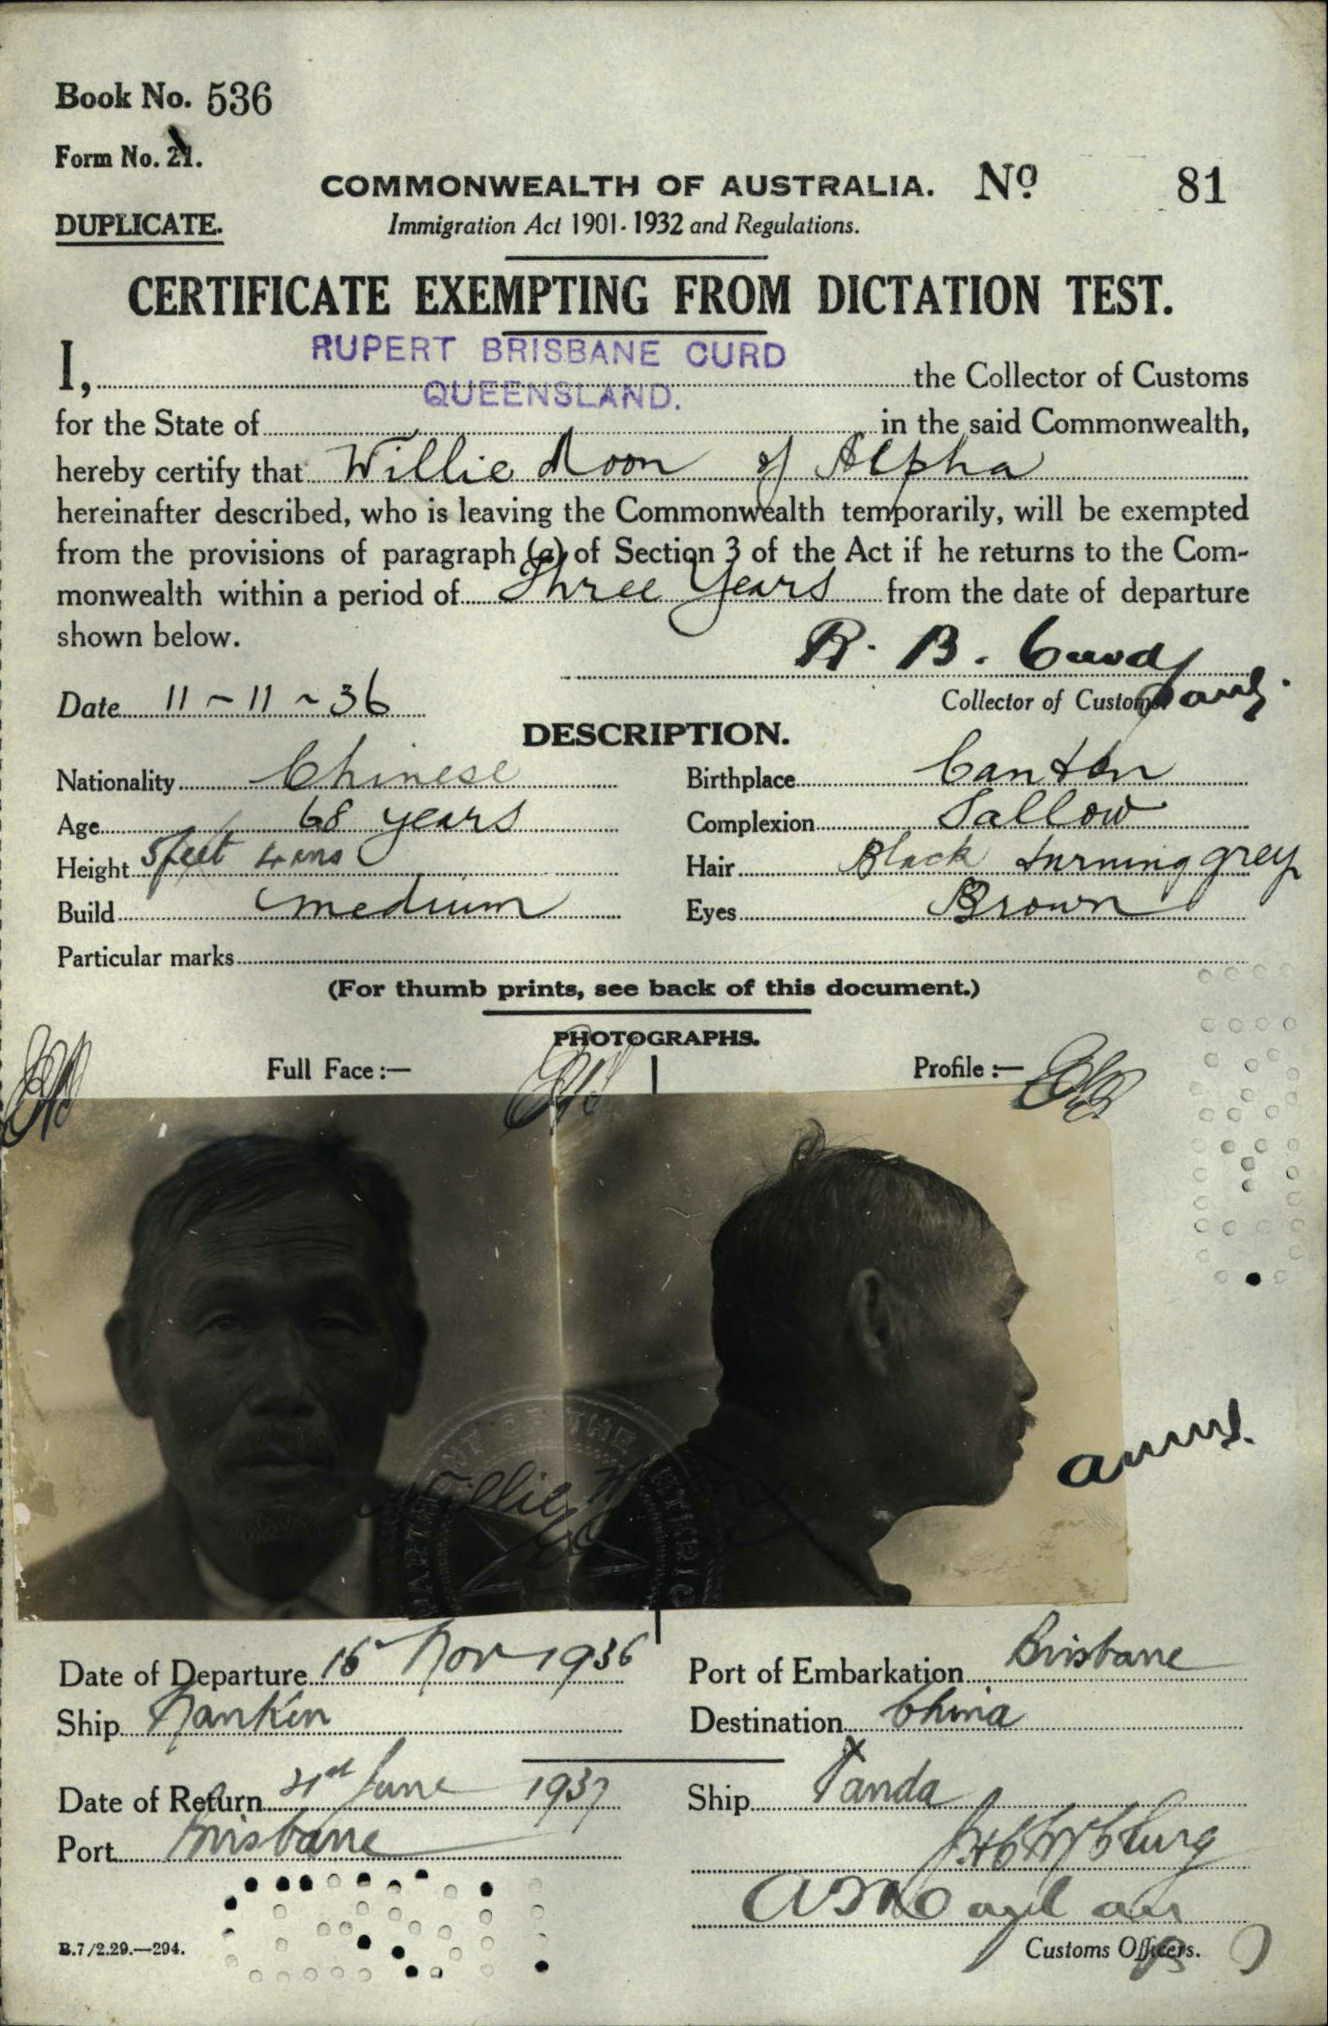 Book No. 536
Form No. 21.
COMMONWEALTH OF AUSTRALIA. No 81
DUPLICATE.
Immigration Act 1901-1932 and Regulations.
CERTIFICATE EXEMPTING FROM DICTATION TEST.
I, RUPERT BRISBANE CURD the Collector of Customs
for the State of QUEENSLAND. in the said Commonwealth,
hereby certify that Willie Moon of Alpha
hereinafter described, who is leaving the Commonwealth temporarily, will be exempted
from the provisions of paragraph (a) of Section 3 of the Act if he returns to the Com-
monwealth within a period of Three Years from the date of departure
shown below.
R. B. Curd
Date 11-11-36 Collector of Customs
DESCRIPTION.
Nationality Chinese Birthplace Canton
Age 68 years Complexion Sallow
Height 5 feet 4 ins Hair Black turning grey
Build medium Eyes Brown
Particular marks
(For thumb prints, see back of this document.)
PHOTOGRAPHS.
Full Face :— Profile :—
Willie Moon
Date of Departure 16 Nov 1936 Port of Embarkation Brisbane
Ship Nankin Destination China
Date of Return 21st June 1937 Ship Tanda
Port Brisbane
B.7/2.29.—294. Customs Officers.